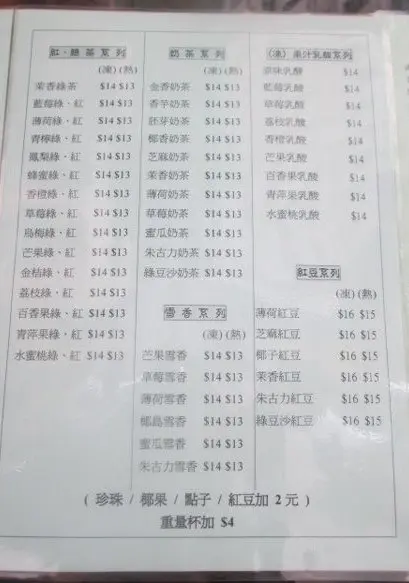 紅、綠茶系列
(凍) (熱)
茉香綠茶 $14 $13
藍莓綠、紅 $14 $13
薄荷綠、紅 $14 $13
青檸綠、紅 $14 $13
鳳梨綠、紅 $14 $13
蜂蜜綠、紅 $14 $13
香橙綠、紅 $14 $13
草莓綠、紅 $14 $13
烏梅綠、紅 $14 $13
芒果綠、紅 $14 $13
金桔綠、紅 $14 $13
荔枝綠、紅 $14 $13
百香果綠、紅 $14 $13
青萍果綠、紅 $14 $13
水蜜桃綠、紅 $14 $13
奶茶系列
(凍) (熱)
金香奶茶 $14 $13
香芋奶茶 $14 $13
胚芽奶茶 $14 $13
椰香奶茶 $14 $13
芝麻奶茶 $14 $13
茉香奶茶 $14 $13
薄荷奶茶 $14 $13
草莓奶茶 $14 $13
蜜瓜奶茶 $14 $13
朱古力奶茶 $14 $13
綠豆沙奶茶 $14 $13
雪香系列
(凍) (熱)
芒果雪香 $14 $13
草莓雪香 $14 $13
薄荷雪香 $14 $13
椰島雪香 $14 $13
蜜瓜雪香 $14 $13
朱古力雪香 $14 $13
(凍) 果汁乳酸系列
原味乳酸 $14
藍莓乳酸 $14
草莓乳酸 $14
荔枝乳酸 $14
香橙乳酸 $14
芒果乳酸 $14
百香果乳酸 $14
青萍果乳酸 $14
水蜜桃乳酸 $14
紅豆系列
(凍) (熱)
薄荷紅豆 $16 $15
芝麻紅豆 $16 $15
椰子紅豆 $16 $15
茉香紅豆 $16 $15
朱古力紅豆 $16 $15
綠豆沙紅豆 $16 $15
( 珍珠 / 椰果 / 點子 / 紅豆加 2 元 )
重量杯加 $4